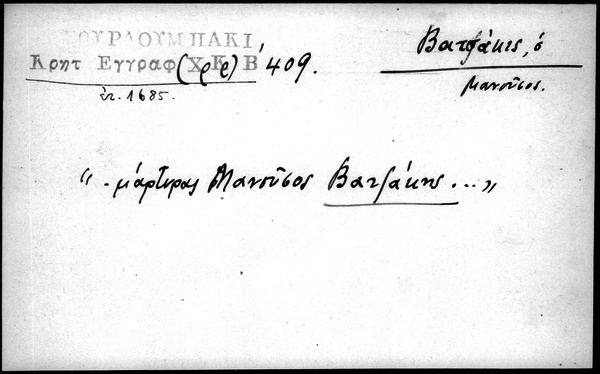 ΟΥΡΛΟΥΜΠΑΚΙ
Κρητ Εγγραφ Χ Κ Β' 409.
(ρε)
ἐτ. 1685.
Βατζάκις, ὁ
Μανοῦσος.
“.. μάρτυρας Μανοῦσος Βατζάκις ... „